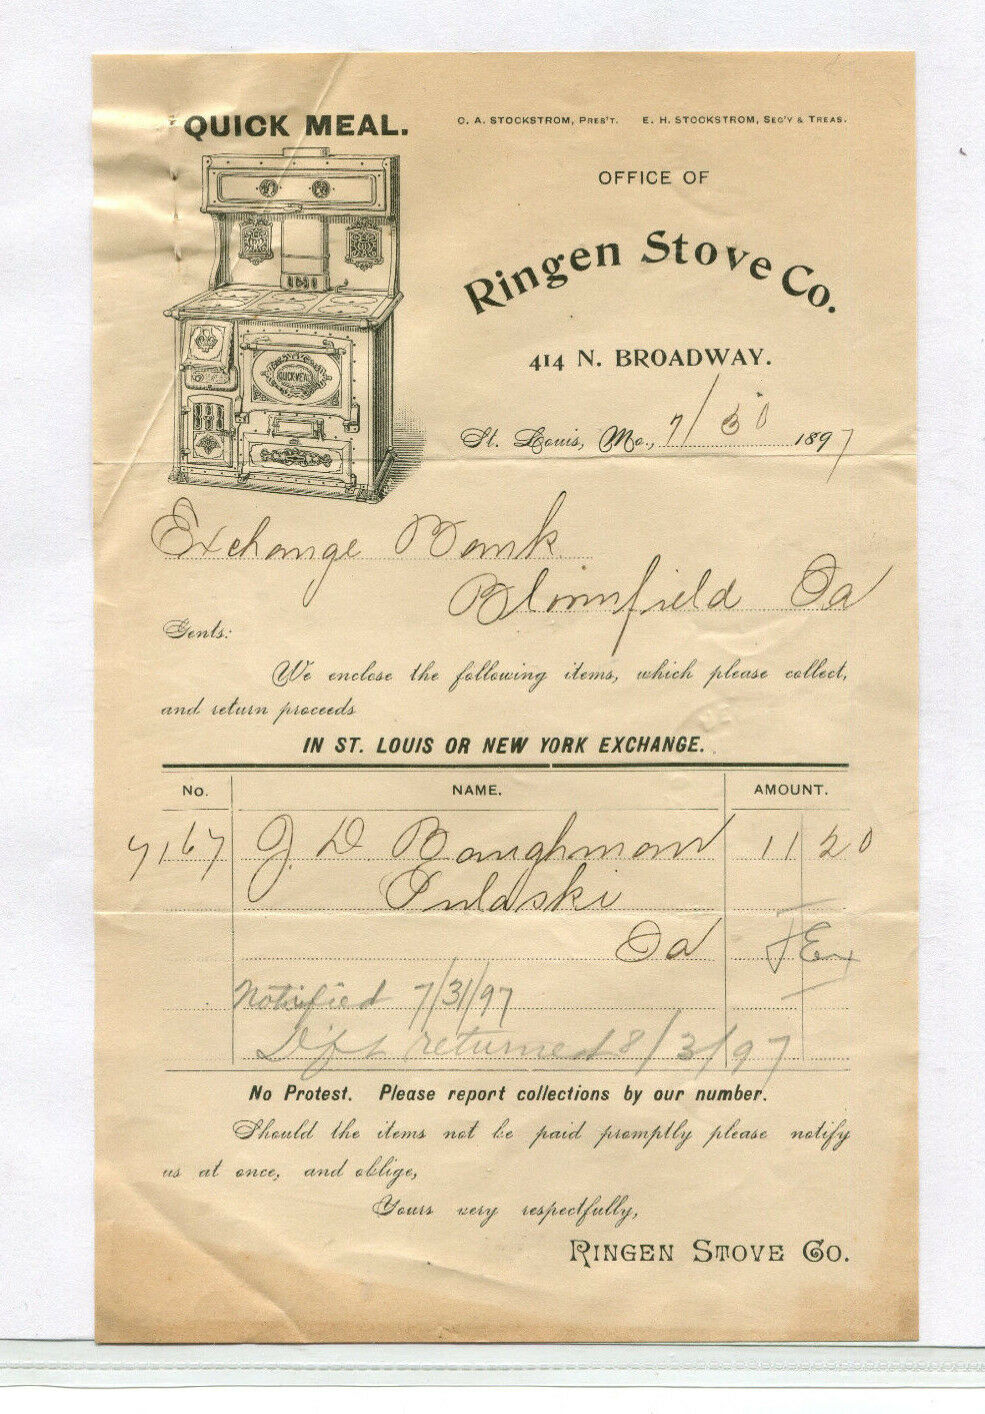 QUICK MEAL.
C. A. STOCKSTROM, PRES'T. E. H. STOCKSTROM, SEC'Y & TREAS.
OFFICE OF
Ringen Stove Co.
414 N. BROADWAY.
St. Louis, Mo., 7/30 1897
QUICK MEAL
Exchange Bank
Bloomfield Ia
Gents:
We enclose the following items, which please collect,
and return proceeds
IN ST. LOUIS OR NEW YORK EXCHANGE.
No. NAME. AMOUNT.
7167 J. D. Baughman 11 20
Pulaski
Ia Ex
Notified 7/31/97
Dft returned 8/3/97
No Protest. Please report collections by our number.
Should the items not be paid promptly please notify
us at once, and oblige,
Yours very respectfully,
RINGEN STOVE CO.